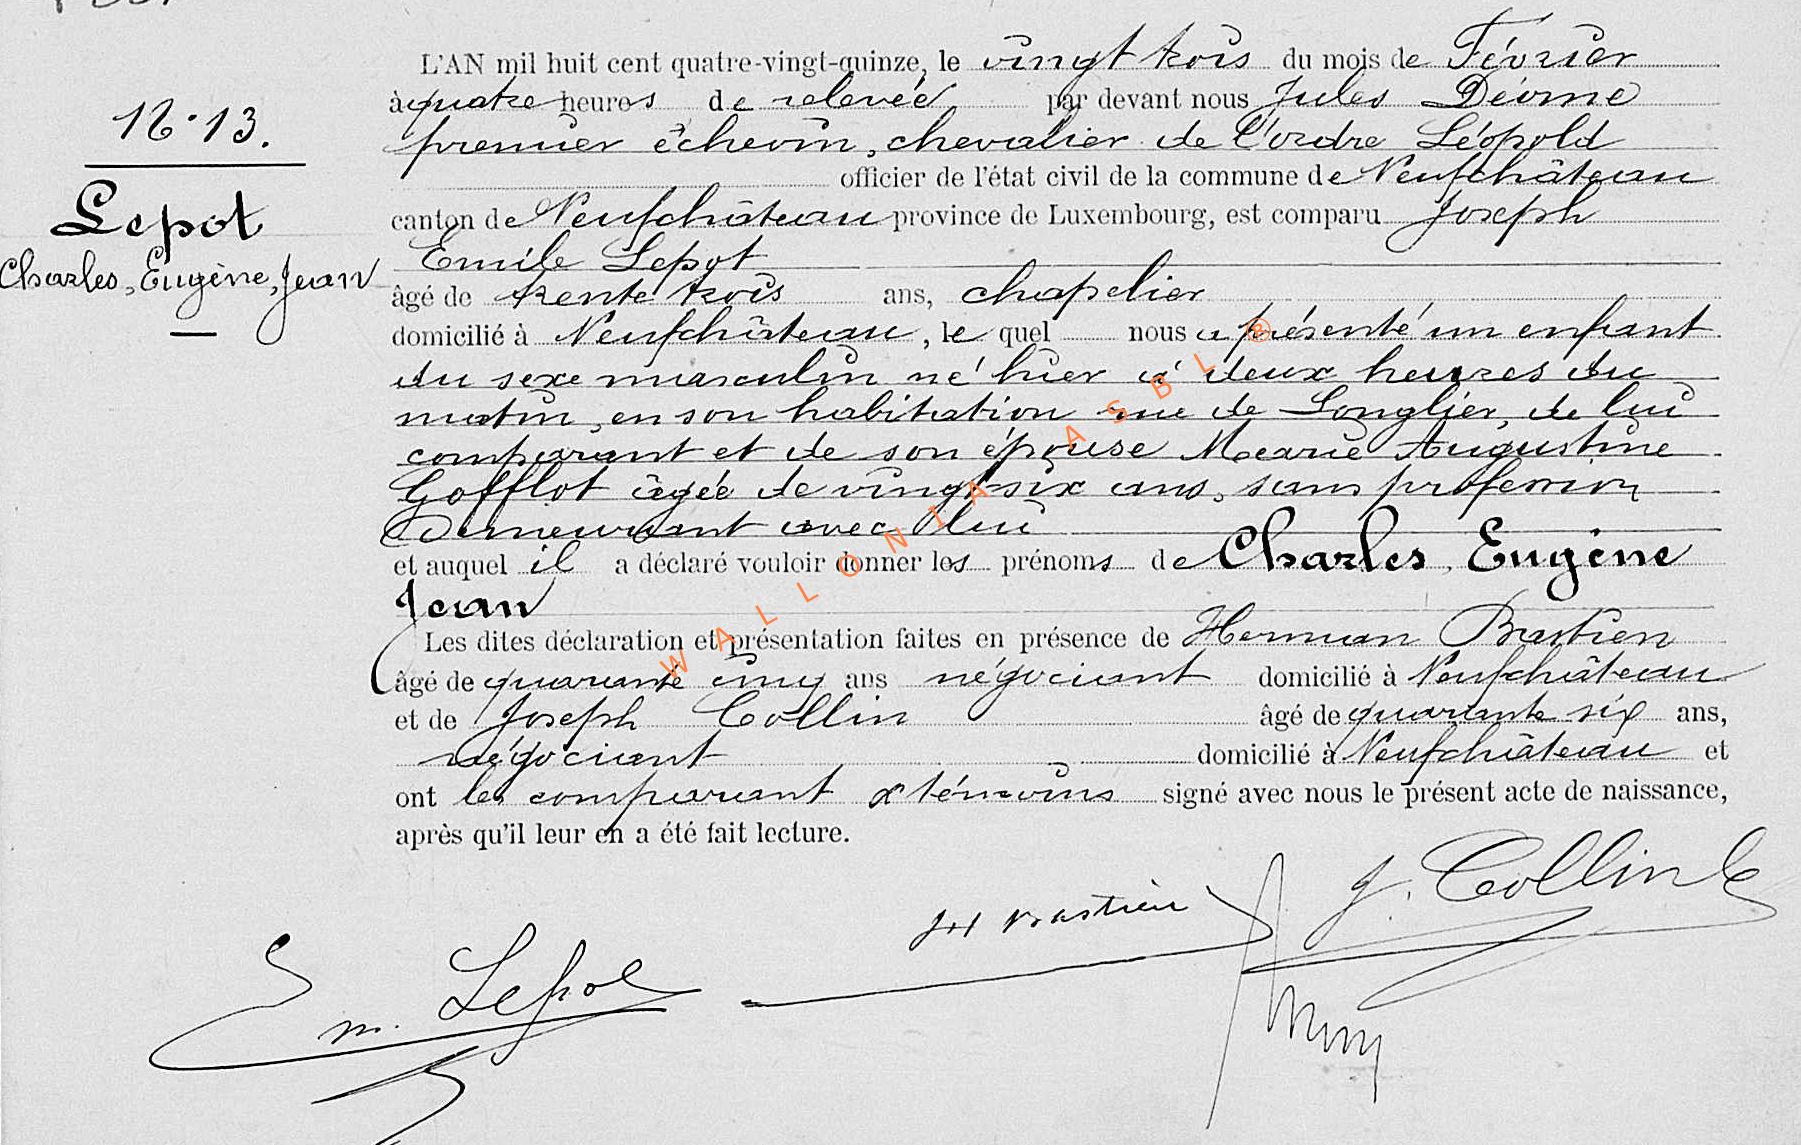 N° 13.
Lepot
Charles, Eugène, Jean
L'AN mil huit cent quatre-vingt-quinze, le vingt trois du mois de Février
à quatre heures de relevée par devant nous Jules
premier échevin, chevalier de l'ordre Léopold
officier de l'état civil de la commune de Neufchâteau
canton de Neufchâteau province de Luxembourg, est comparu Joseph
Emile Lepot
âgé de trente trois ans, chapelier
domicilié à Neufchâteau, le quel nous a présenté un enfant
du sexe masculin né hier à deux heures du
matin, en son habitation rue de Longlier, de lui
comparant et de son épouse Marie Augustine
Gofflot âgée de vingt-six ans, sans profession
demeurant avec lui
et auquel il a déclaré vouloir donner les prénoms de Charles, Eugène
Jean
Les dites déclaration et présentation faites en présence de Herman Bastien
âgé de quarante cinq ans négociant domicilié à Neufchâteau
et de Joseph Collin âgé de quarante six ans,
négociant domicilié à Neufchâteau et
ont les comparant & témoins signé avec nous le présent acte de naissance,
après qu'il leur en a été fait lecture.
J. Collin
H Bastien
Em. Lepot
WALLONIA ASBL ®